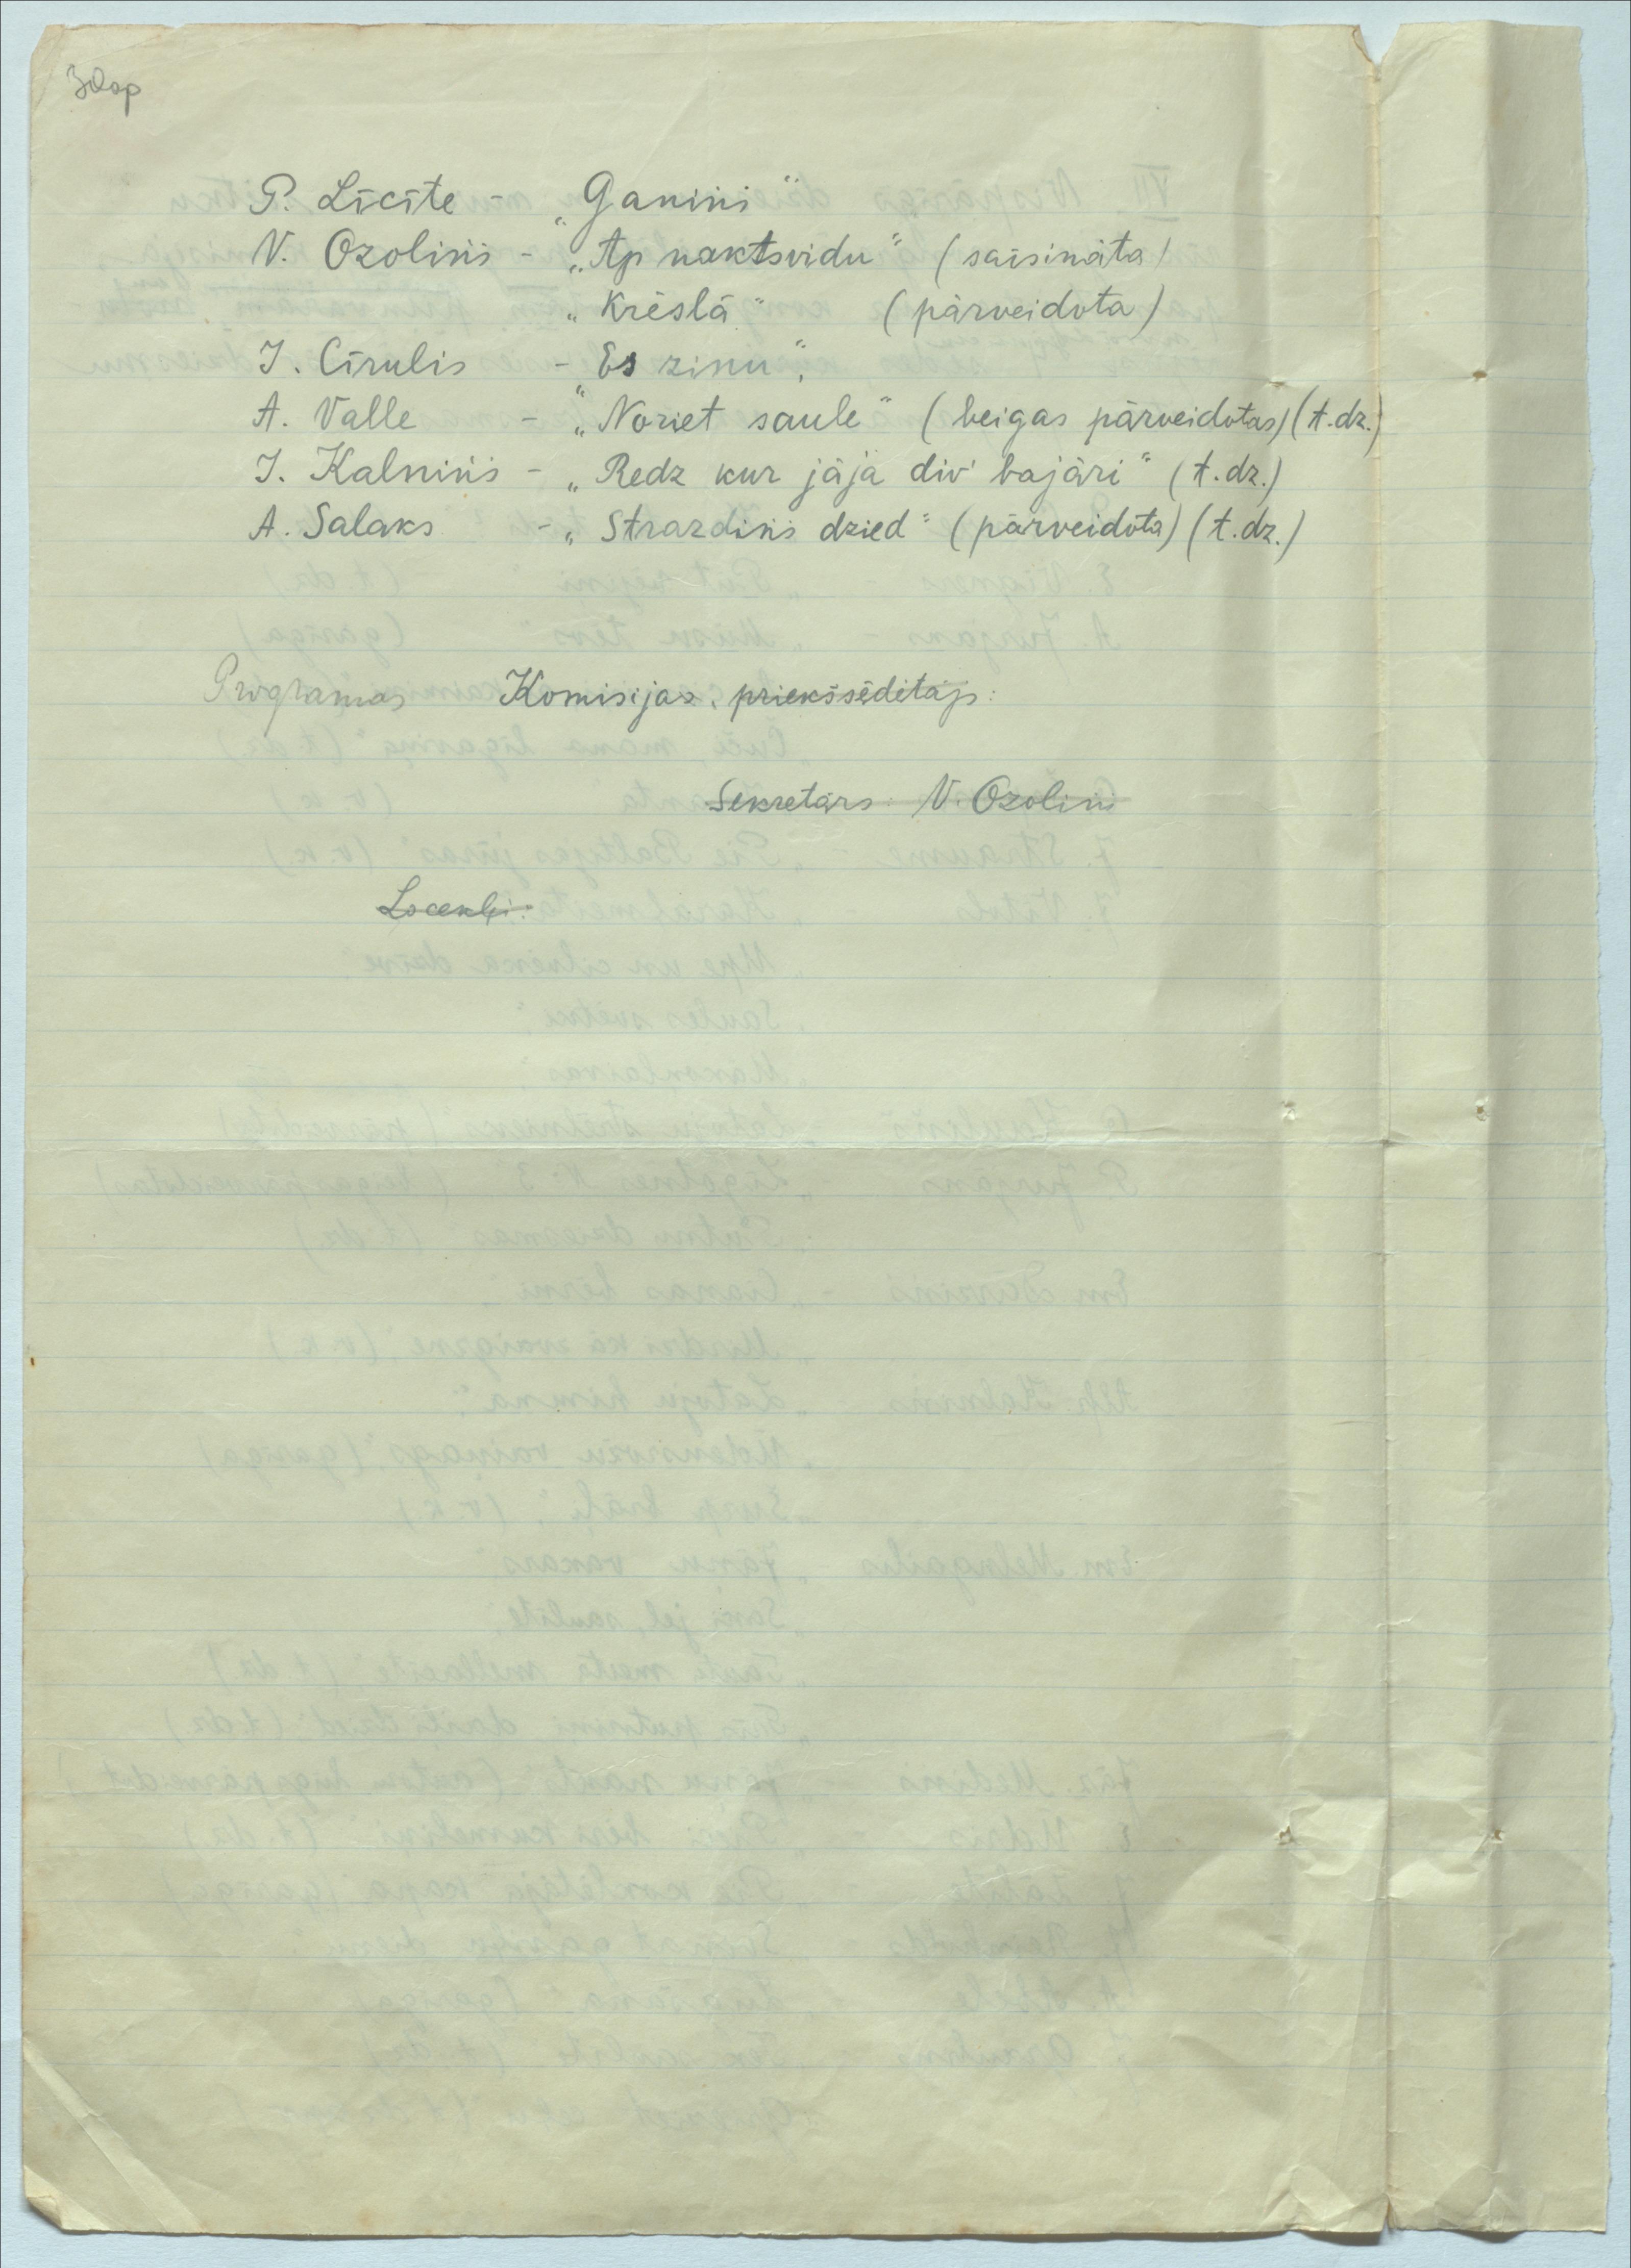 30ap
P. Līcīte - „Ganiņi"
V. Ozoliņš - „Ap naktsvidu" (saīsināta)
„Krēslā" (pārveidota)
J. Cīrulis - „Es zinu".
A. Valle - „Noriet saule" (beigas pārveidotas) (t.dz.)
J. Kalniņš - „Redz kur jāja div' bajāri" (t.dz.)
A. Salaks - „Strazdiņš dzied" (pārveidota) (t.dz.)
Programas Komisijas priekšsēdētājs:
Sekretārs: V. Ozoliņš
Locekļi: